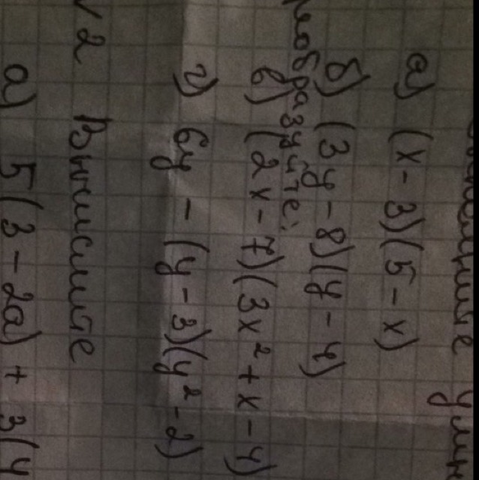 а) (x - 3)(5 - x)
б) (3y - 8)(y - 4)
преобразуйте:
в) (2x - 7)(3x² + x - 4)
г) 6y - (y - 3)(y² - 2)
√ 2 Вычислите
а) 5(3 - 2a) + 3(4